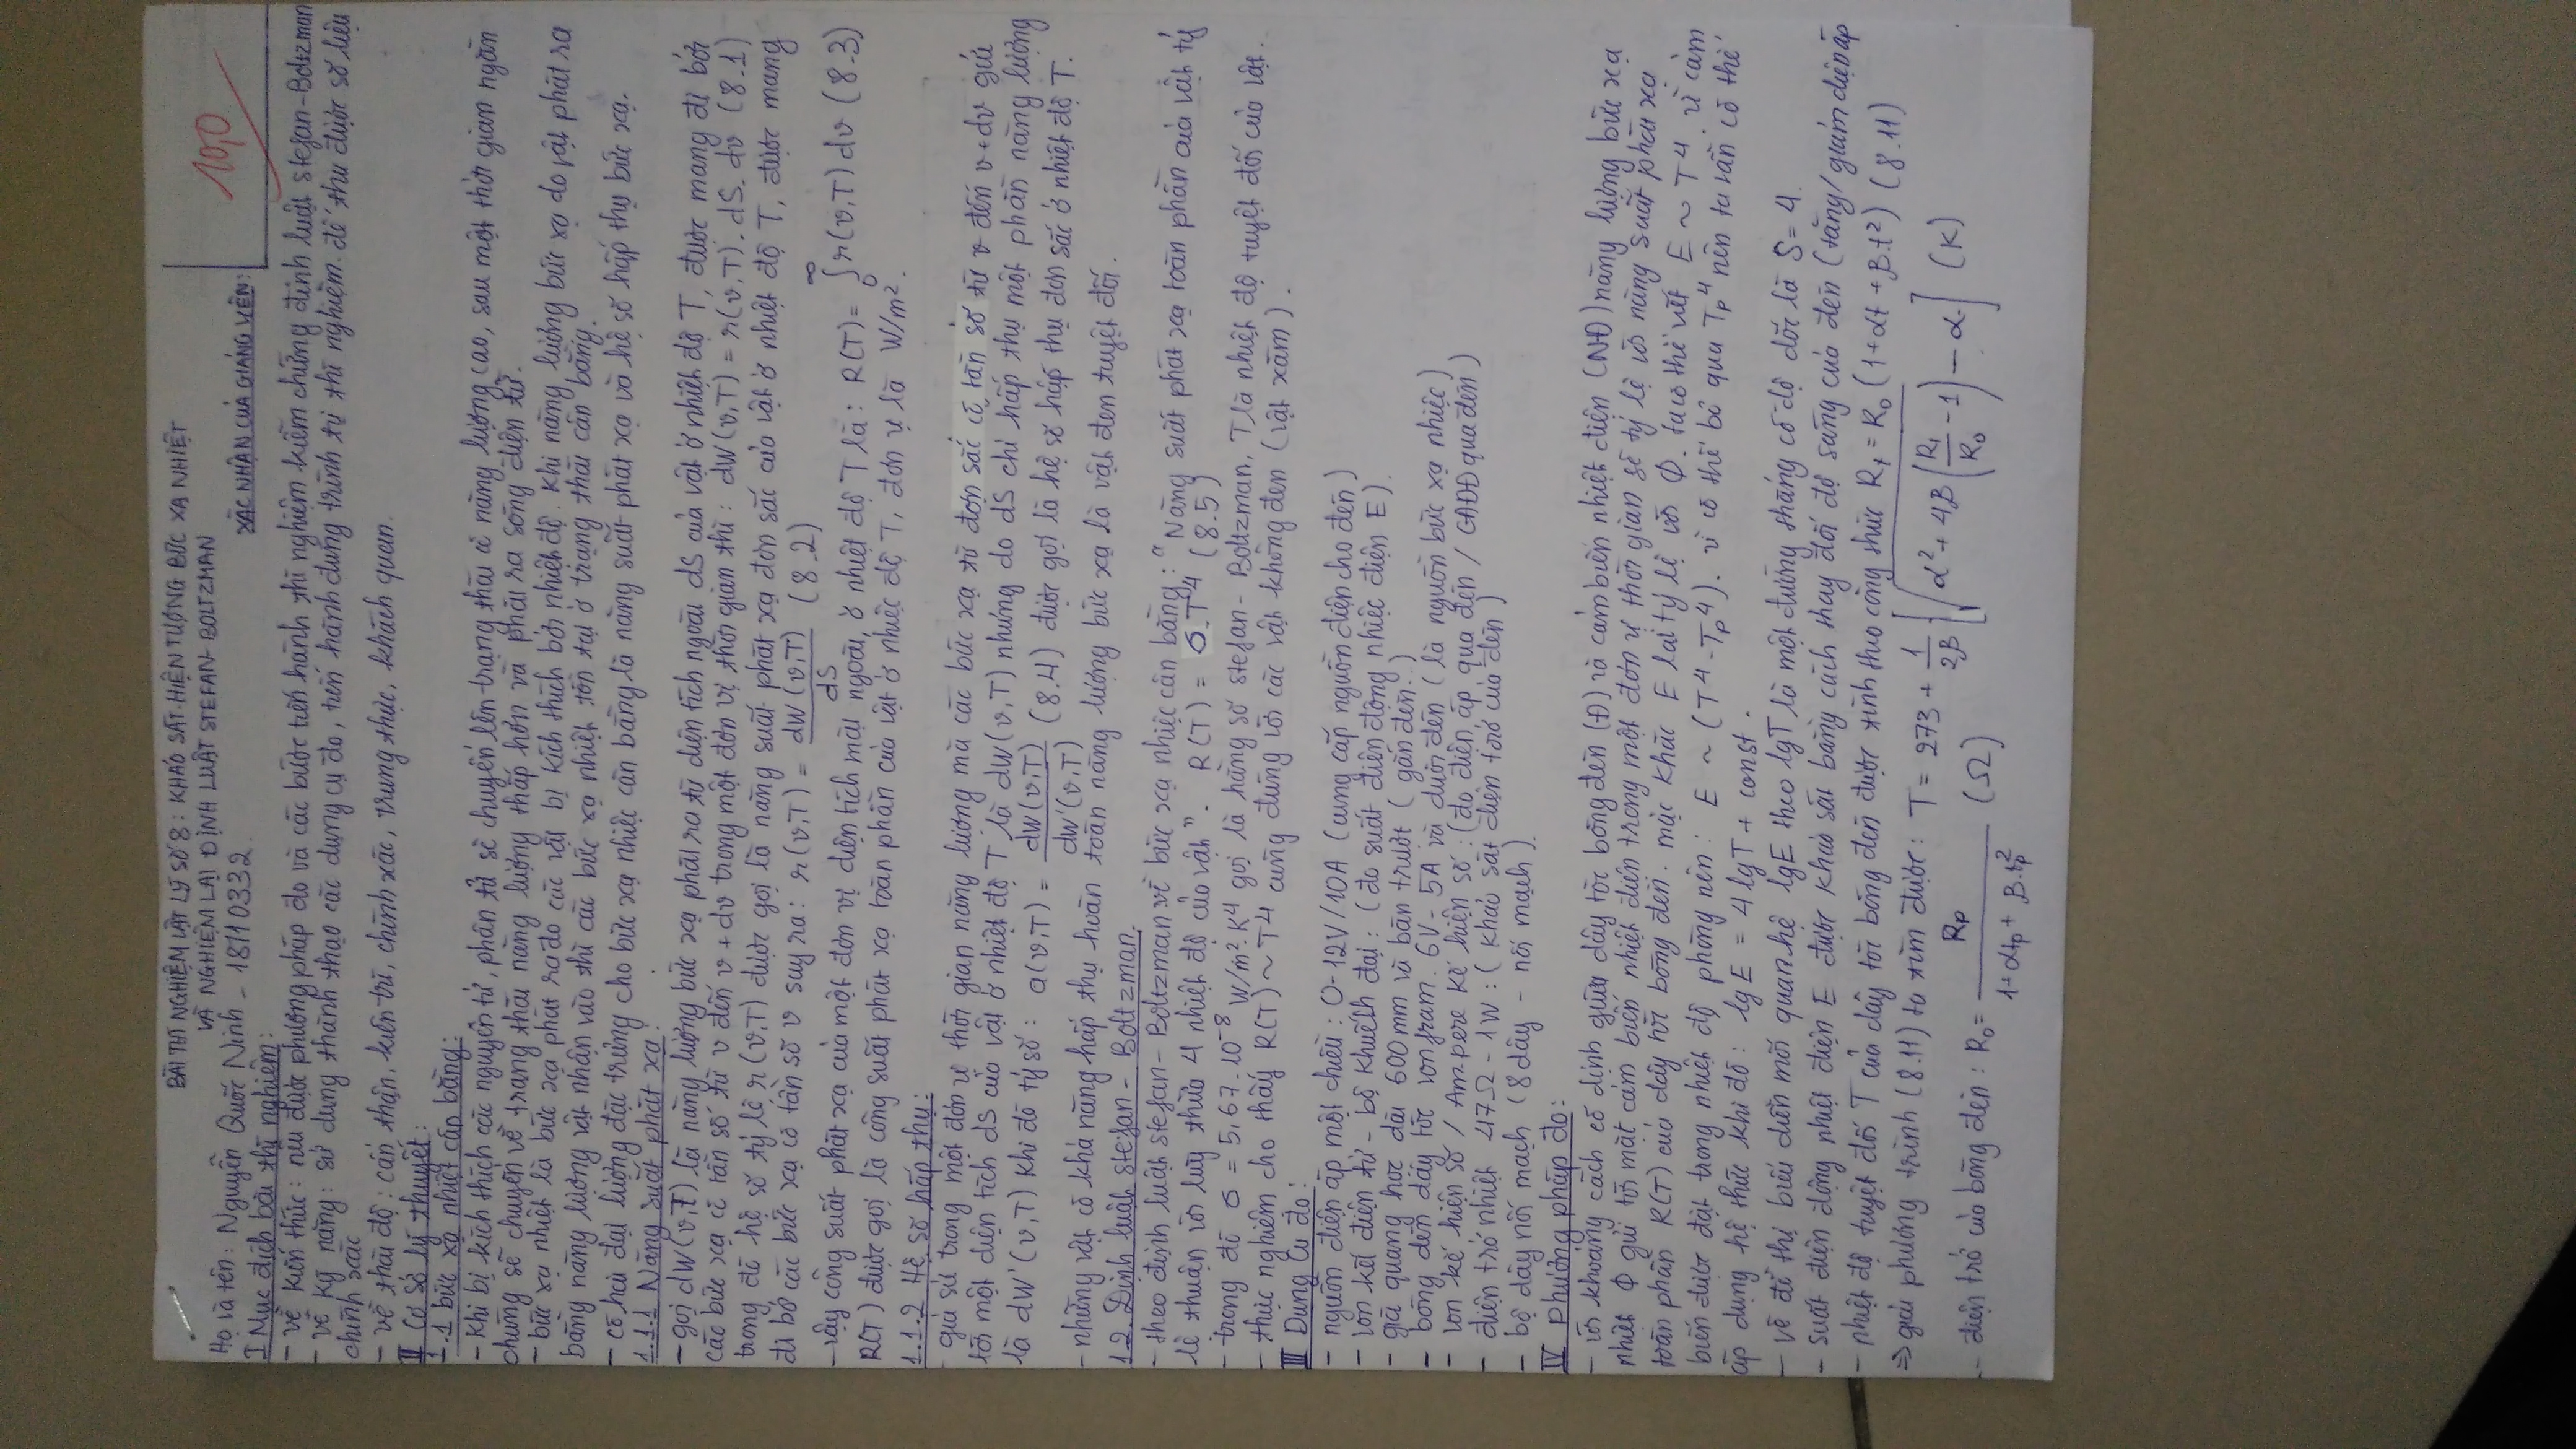 BÀI THÍ NGHIỆM VẬT LÝ SỐ 8: KHẢO SÁT HIỆN TƯỢNG BỨC XẠ NHIỆT
VÀ NGHIỆM LẠI ĐỊNH LUẬT STEFAN-BOLTZMAN
10,0
Họ và tên: Nguyễn Quốc Ninh - 18110332
XÁC NHẬN CỦA GIẢNG VIÊN:
I Mục đích bài thí nghiệm:
- về kiến thức: nêu được phương pháp đo và các bước tiến hành thí nghiệm kiểm chứng định luật Stefan-Boltzman
- về kỹ năng: sử dụng thành thạo các dụng cụ đo, tiến hành đúng trình tự thí nghiệm để thu được số liệu
chính xác
- về thái độ: cẩn thận, kiên trì, chính xác, trung thực, khách quan.
II Cơ sở lý thuyết:
1.1 bức xạ nhiệt cân bằng:
- Khi bị kích thích các nguyên tử, phân tử sẽ chuyển lên trạng thái có năng lượng cao, sau một thời gian ngắn
chúng sẽ chuyển về trạng thái năng lượng thấp hơn và phát ra sóng điện từ.
- bức xạ nhiệt là bức xạ phát ra do các vật bị kích thích bởi nhiệt độ. Khi năng lượng bức xạ do vật phát ra
bằng năng lượng vật nhận vào thì các bức xạ nhiệt tồn tại ở trạng thái cân bằng.
- có hai đại lượng đặc trưng cho bức xạ nhiệc cân bằng là năng suất phát xạ và hệ số hấp thụ bức xạ.
1.1.1 Năng suất phát xạ:
- gọi dW(ν,T) là năng lượng bức xạ phát ra từ diện tích ngoài dS của vật ở nhiệt độ T, được mang đi bởi
các bức xạ có tần số từ ν đến ν + dν trong một đơn vị thời gian thì: dW(ν,T) = r(ν,T).dS.dν (8.1)
trong đó hệ số tỷ lệ r(ν,T) được gọi là năng suất phát xạ đơn sắc của vật ở nhiệt độ T, được mang
đi bở các bức xạ có tần số ν suy ra: r(ν,T) = dW(ν,T)/dS (8.2)
- vậy công suất phát xạ của một đơn vị diện tích mặt ngoài, ở nhiệt độ T là: R(T) = ∫₀^∞ r(ν,T)dν (8.3)
R(T) được gọi là công suất phát xạ toàn phần của vật ở nhiệc độ T, đơn vị là W/m².
1.1.2 Hệ số hấp thụ:
- giả sử trong một đơn vị thời gian năng lượng mà các bức xạ từ đơn sắc có tần số từ ν đến ν+dν gửi
tới một diện tích dS của vật ở nhiệt độ T là dW(ν,T) nhưng do dS chỉ hấp thụ một phần năng lượng
là dW'(ν,T) khi đó tỷ số: a(ν,T) = dW(ν,T)/dW'(ν,T) (8.4) được gọi là hệ số hấp thụ đơn sắc ở nhiệt độ T.
- những vật có khả năng hấp thụ hoàn toàn năng lượng bức xạ là vật đen tuyệt đối.
1.2. Định luật Stefan - Boltzman.
- theo định luật Stefan-Boltzman về bức xạ nhiệc cân bằng: "Năng suất phát xạ toàn phần của vật tỷ
lệ thuận với luỹ thừa 4 nhiệt độ của vật". R(T) = σ.T⁴ (8.5)
- trong đó σ = 5,67.10⁻⁸ W/m².K⁴ gọi là hằng số Stefan-Boltzman, T là nhiệt độ tuyệt đối của vật.
- thực nghiệm cho thấy R(T) ~ T⁴ cũng đúng với các vật không đen (vật xám).
III Dụng cụ đo:
- nguồn điện áp một chiều: 0-12V/10A (cung cấp nguồn điện cho đèn)
- vôn kế điện tử - bộ khuếch đại: (đo suất điện động nhiệc điện E).
- giá quang học dài 600mm và bàn trượt (gắn đèn..)
- bóng đèn dây tóc vonfram. 6V-5A và đuôi đèn (là nguồn bức xạ nhiệc)
- vôn kế hiện số / Ampere kế hiện số: (đo điện áp qua đèn / CĐDĐ qua đèn)
- điện trở nhiệt 47Ω - 1W: (khảo sát điện trở của đèn)
- bộ dây nối mạch (8 dây - nối mạch).
IV phương pháp đo:
- với khoảng cách cố định giữa dây tóc bóng đèn (Đ) và cảm biến nhiệt điện (NĐ) năng lượng bức xạ
nhiệt Φ gửi tới mặt cảm biến nhiệt điện trong một đơn vị thời gian sẽ tỷ lệ với năng suất phát xạ
toàn phần R(T) của dây tóc bóng đèn. mặc khác E lại tỷ lệ với Φ. ta có thể viết E ~ T⁴. vì cảm
biến được đặt trong nhiệt độ phòng nên: E ~ (T⁴-Tp⁴). vì có thể bỏ qua Tp⁴ nên ta vẫn có thể
áp dụng hệ thức khi đó: lgE = 4lgT + const.
- vẽ đồ thị biểu diễn mối quan hệ lgE theo lgT là một đường thẳng có độ dốc là S = 4.
- suất điện động nhiệt điện E được khảo sát bằng cách thay đổi độ sáng của đèn (tăng/giảm điện áp
- nhiệt độ tuyệt đối T của dây tóc bóng đèn được tính theo công thức Rt = R₀(1+αt+β.t²) (8.11)
⇒ giải phương trình (8.11) ta tìm được: T = 273 + 1/2β [√(α²+4β(Rt/R₀ - 1)) - α] (K)
- điện trở của bóng đèn: R₀ = Rp/(1+αtp+β.tp²) (Ω)